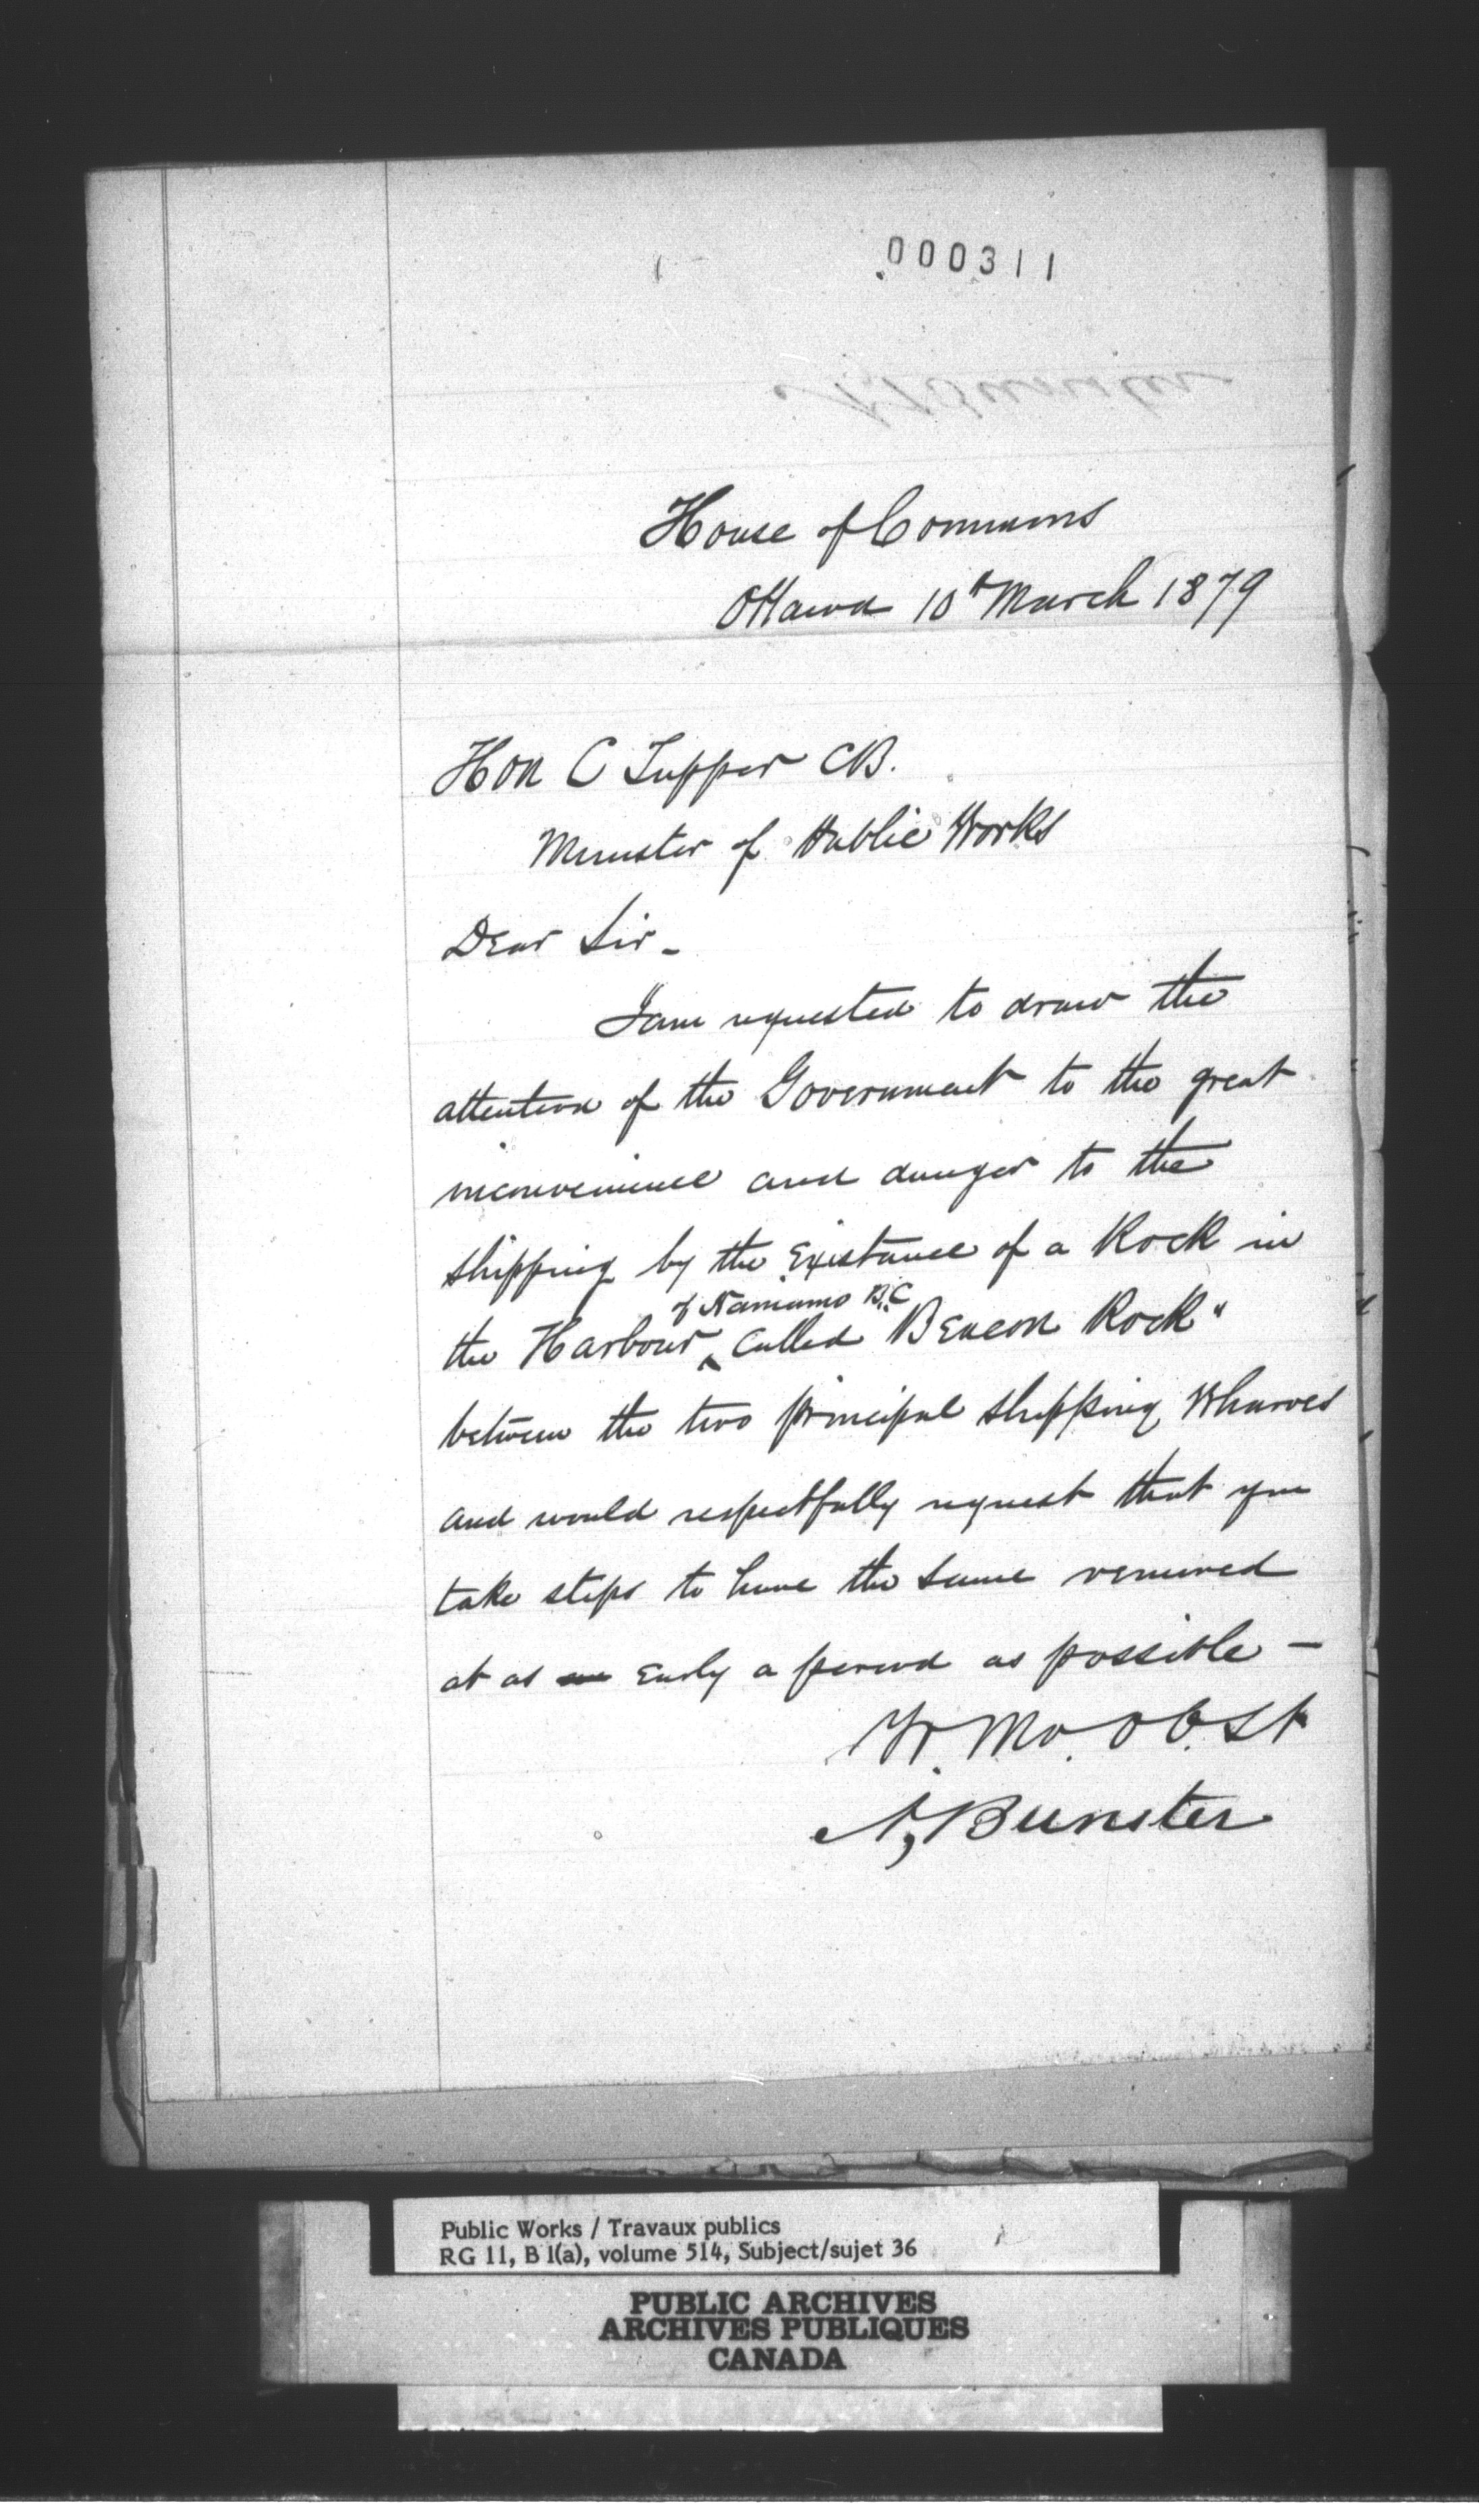 000311
House of Commons
Ottawa 10th March 1879
Hon C Tupper CB.
Minister of Public Works
Dear Sir -
I am requested to draw the
attention of the Government to the great
inconvenience and danger to the
shipping by the Existance of a Rock in
of Naniamo B.C
the Harbour ^ Called Beacon Rock"
between the two principal shipping Wharves
and would respectfully request that you
take steps to have the same removed
at as Early a period as possible -
Yr. Mo. Ob. St
A, Bunster
Public Works / Travaux publics
RG 11, B 1(a), volume 514, Subject/sujet 36
PUBLIC ARCHIVES
ARCHIVES PUBLIQUES
CANADA